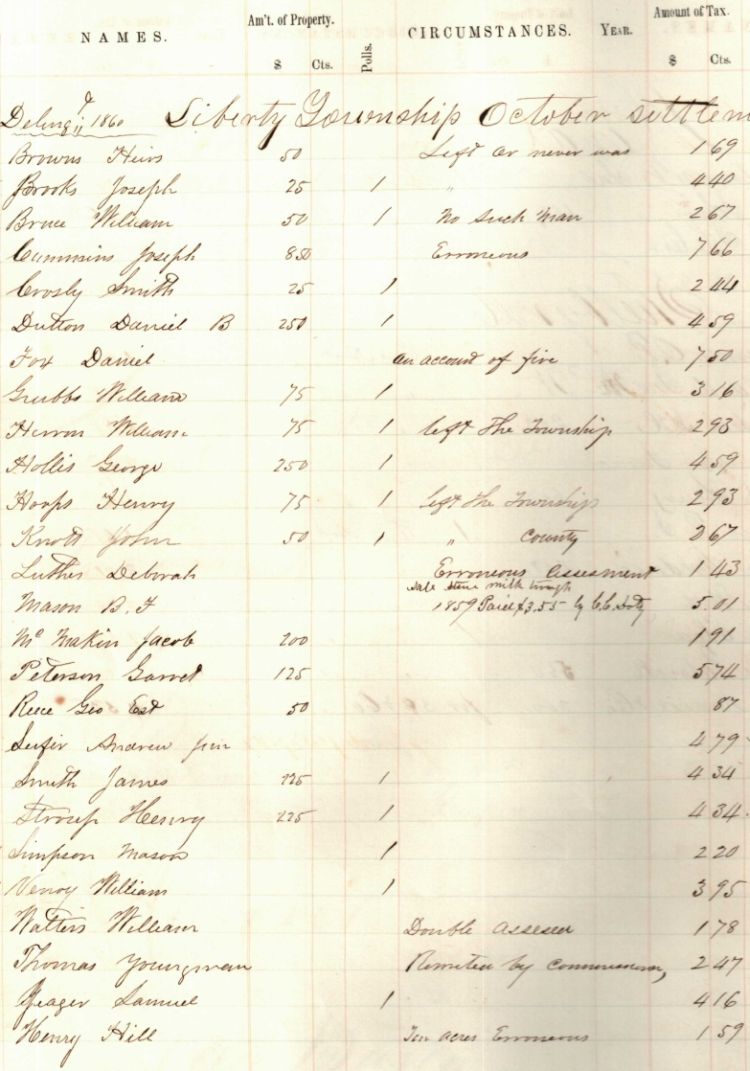 NAMES. Am't. of Property. Polls. CIRCUMSTANCES. YEAR. Amount of Tax.
$ Cts. $ Cts.
Delinq't 1860 Liberty Township October settlem
Browns Heirs 50 Left or never was 1 69
Brooks Joseph 25 1 " 4 40
Bruce William 50 1 No such Man 2 67
Cummins Joseph 850 Erroneous 7 66
Crosby Smith 25 1 2 44
Dutton Daniel B 250 1 4 59
Fox Daniel an account of five 7 50
Grubbs William 75 1 3 16
Herron William 75 1 left The Township 2 93
Hollis George 250 1 4 59
Hoops Henry 75 1 left The Township 2 93
Knott John 50 1 " County 2 67
Luther Deborah Erroneous Assesment 1 43
Mason B. F 1859 Paid $3.55 by 5.01
Mc Makin Jacob 200 1 91
Peterson Garret 125 5 74
Reece Geo Est 50 87
Andrew 4 79
Smith James 225 1 4 34
Stroup Henry 225 1 4 34
Simpson Mason 1 2 20
William 1 3 95
Watters William Double assesed 1 78
Thomas Youngman Remitted by 2 47
Yeager Samuel 1 4 16
Henry Hill Ten acres Erroneous 1 59